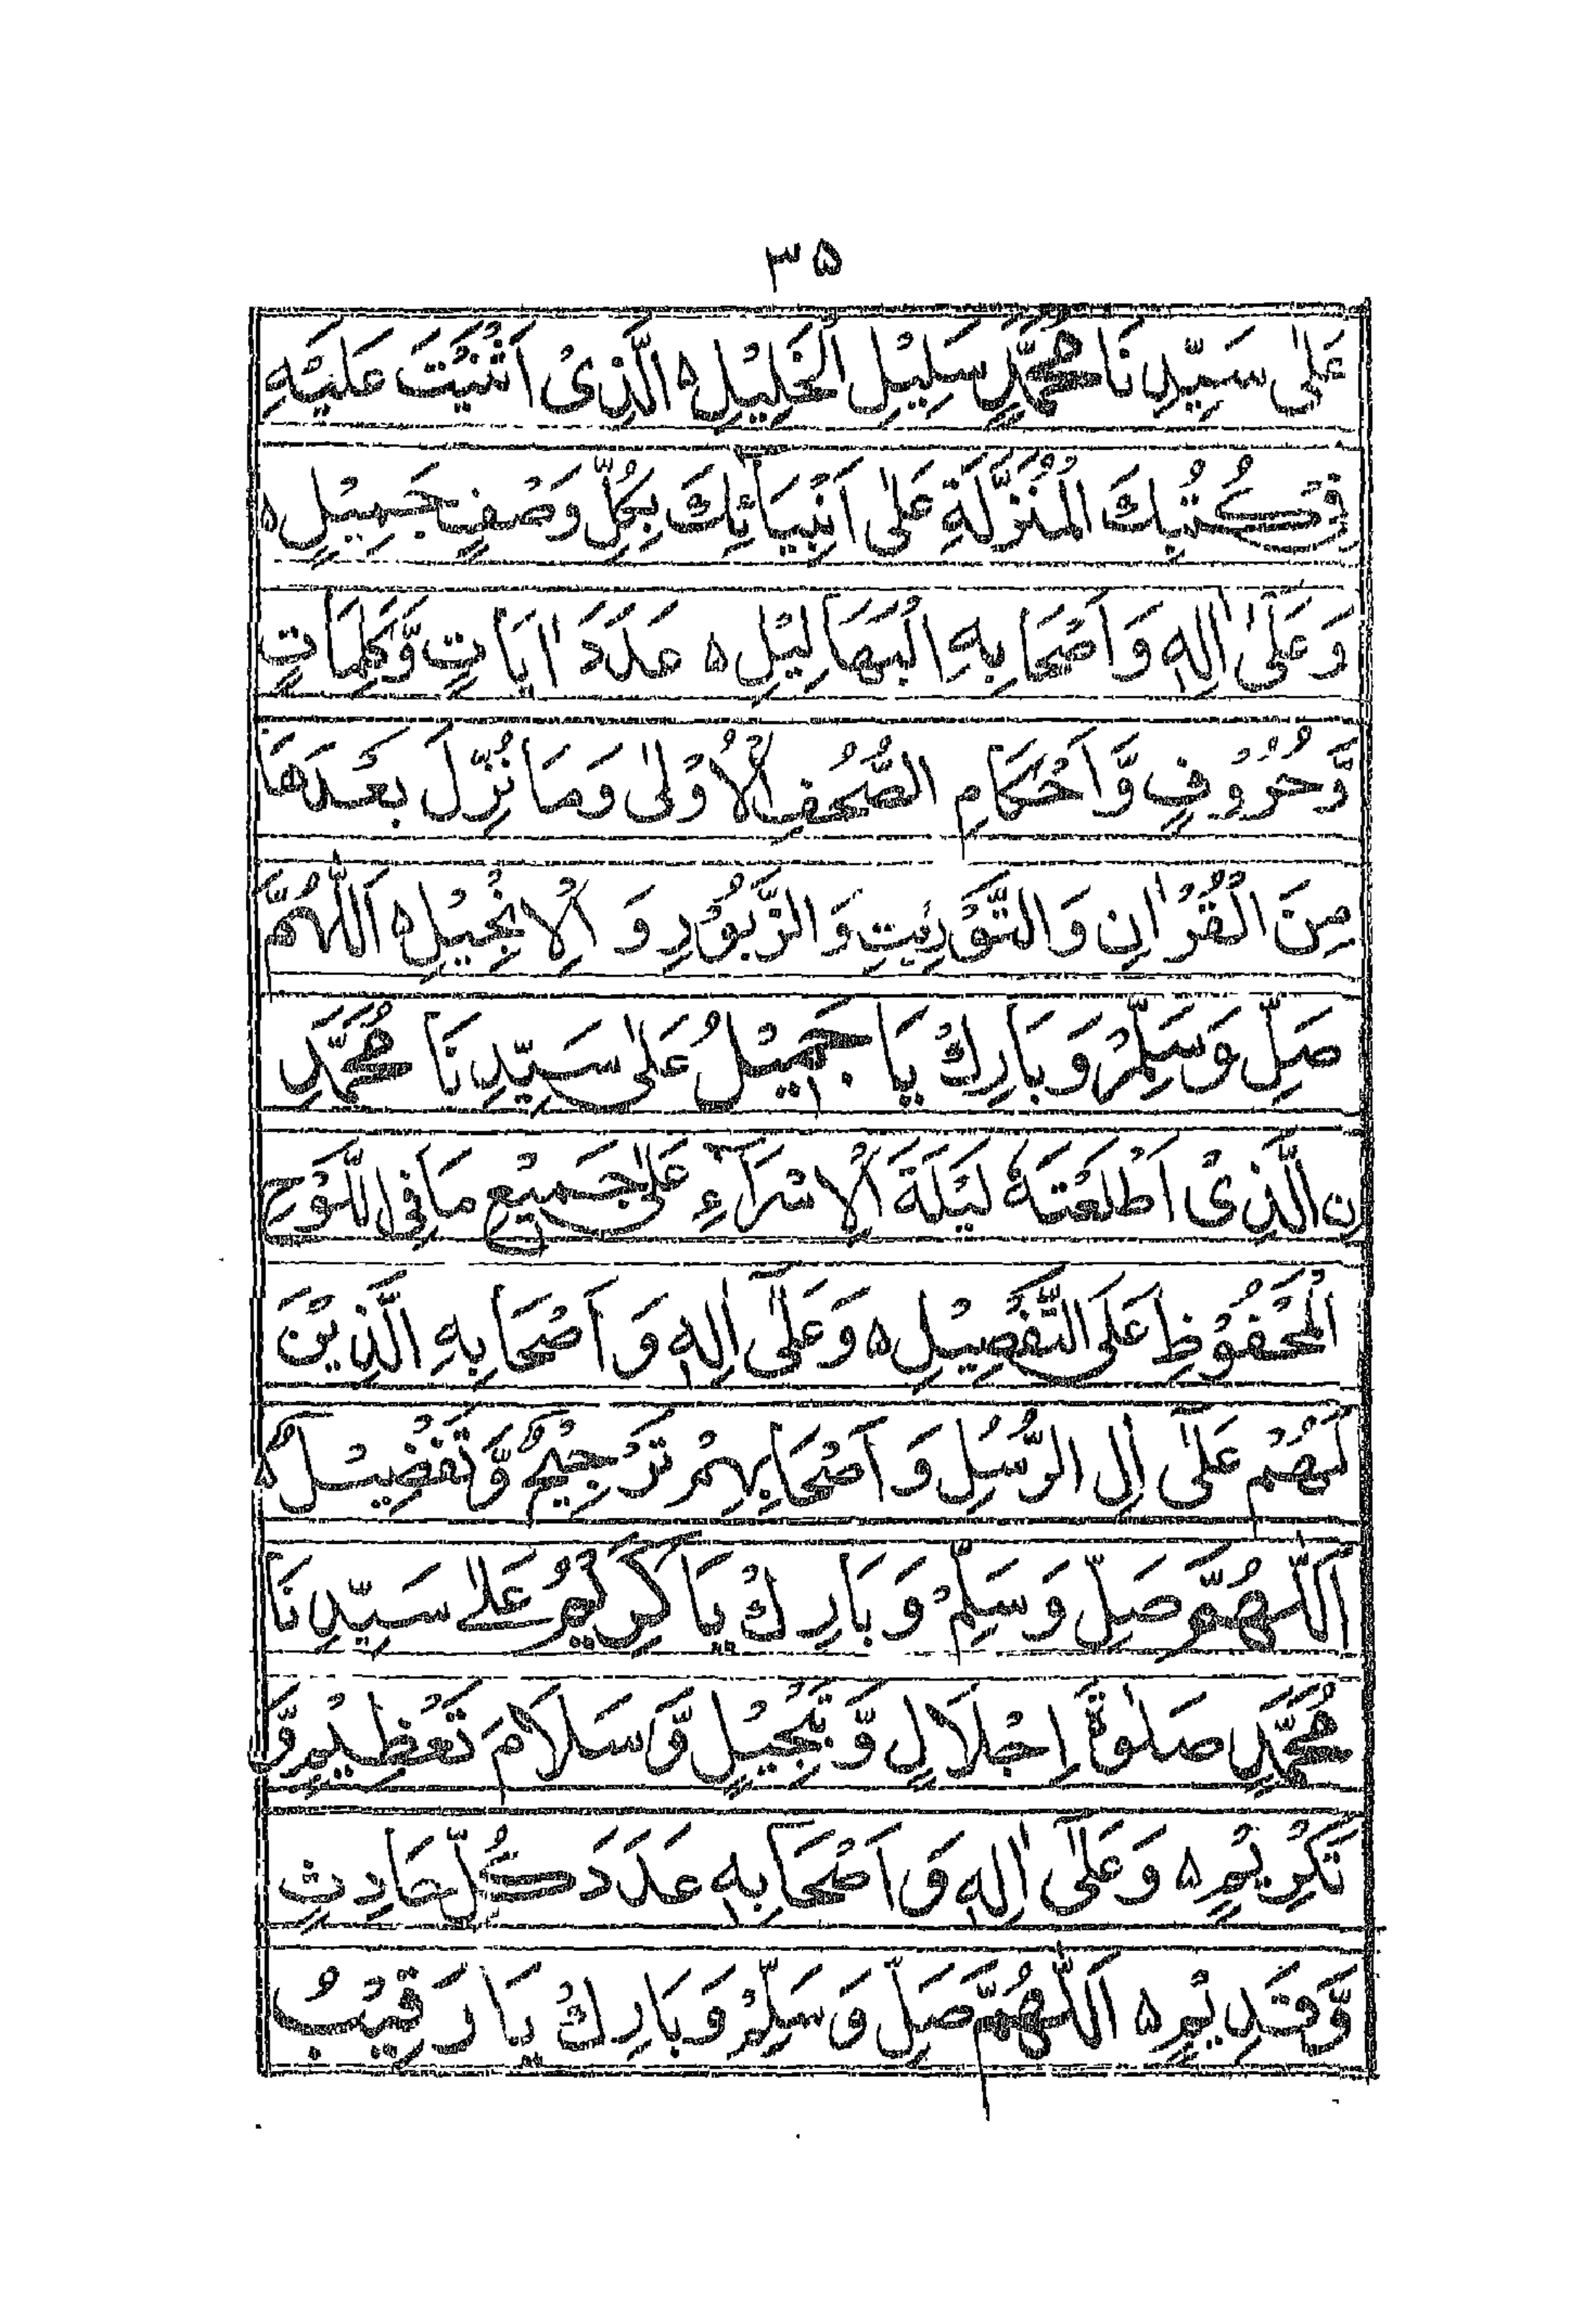 ۳۵
عَلٰى سَيِّدِنَا مُحَمَّدٍ سَلِيْلِ الْخَلِيْلِ ۵ الَّذِىْ اَثْنَيْتَ عَلَيْهِ
فِىْ كُتُبِكَ الْمُنَزَّلَةِ عَلٰى اَنْبِيَآئِكَ بِكُلِّ وَصْفٍ جَمِيْلٍ ۵
وَعَلٰٓى اٰلِهٖ وَاَصْحَابِهِ الْبَهَالِيْلِ ۵ عَدَدَ اٰيَاتٍ وَّكَلِمَاتٍ
وَّحُرُوْفٍ وَّاَحْكَامِ الصُّحُفِ الْاُوْلٰى وَمَا نُزِّلَ بَعْدَهَا
مِنَ الْقُرْاٰنِ وَالتَّوْرٰىتِ وَالزَّبُوْرِ وَ الْاِنْجِيْلِ ۵ اَللّٰهُمَّ
صَلِّ وَسَلِّمْ وَبَارِكْ يَا جَمِيْلُ عَلٰى سَيِّدِنَا مُحَمَّدِ
نِ الَّذِىْ اَطْلَعْتَهٗ لَيْلَةَ الْاِسْرَآءِ عَلٰى جَمِيْعِ مَا فِى اللَّوْحِ
الْمَحْفُوْظِ عَلَى التَّفْصِيْلِ ۵ وَعَلٰٓى اٰلِهٖ وَ اَصْحَابِهِ الَّذِيْنَ
لَهُمْ عَلٰٓى اٰلِ الرُّسُلِ وَ اَصْحَابِهِمْ تَرْجِيْحٌ وَّتَفْضِيْلٌ ۵
اَللّٰهُمَّ صَلِّ وَسَلِّمْ وَ بَارِكْ يَا كَرِيْمُ عَلٰى سَيِّدِنَا
مُحَمَّدٍ صَلٰوةَ اِجْلَالٍ وَّتَبْجِيْلٍ وَّسَلَامَ تَعْظِيْمٍ وَّ
تَكْرِيْمٍ ۵ وَعَلٰٓى اٰلِهٖ وَ اَصْحَابِهٖ عَدَدَ كُلِّ حَادِثٍ
وَّقَدِيْمٍ ۵ اَللّٰهُمَّ صَلِّ وَسَلِّمْ وَبَارِكْ يَا رَقِيْبُ